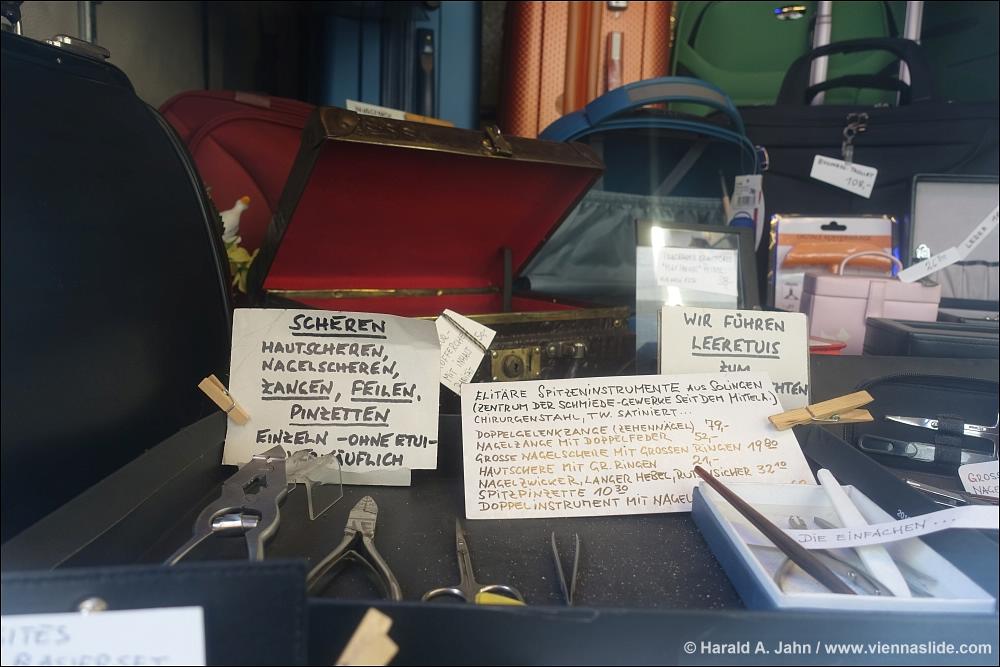 SCHEREN
HAUTSCHEREN,
NAGELSCHEREN,
ZANGEN, FEILEN,
PINZETTEN
EINZELN - OHNE ETUI -
MIT INHALT
WIR FÜHREN
LEERETUIS
ZUM
ELITÄRE SPITZENINSTRUMENTE AUS SOLINGEN
(ZENTRUM DER SCHMIEDE-GEWERKE SEIT DEM MITTELA.)
CHIRURGENSTAHL, T.W. SATINIERT...
DOPPELGELENKZANGE (ZEHENNÄGEL) 79,-
NAGELZANGE MIT DOPPELFEDER 52,-
GROSSE NAGELSCHERE MIT GROSSEN RINGEN 19 80
HAUTSCHERE MIT GR. RINGEN 21,-
NAGELZWICKER, LANGER HEBEL, 32 10
SPITZPINZETTE 10 30
DOPPELINSTRUMENT MIT
DIE EINFACHEN...
108,-
LEDER
26
GROSS
© Harald A. Jahn / www.viennaslide.com